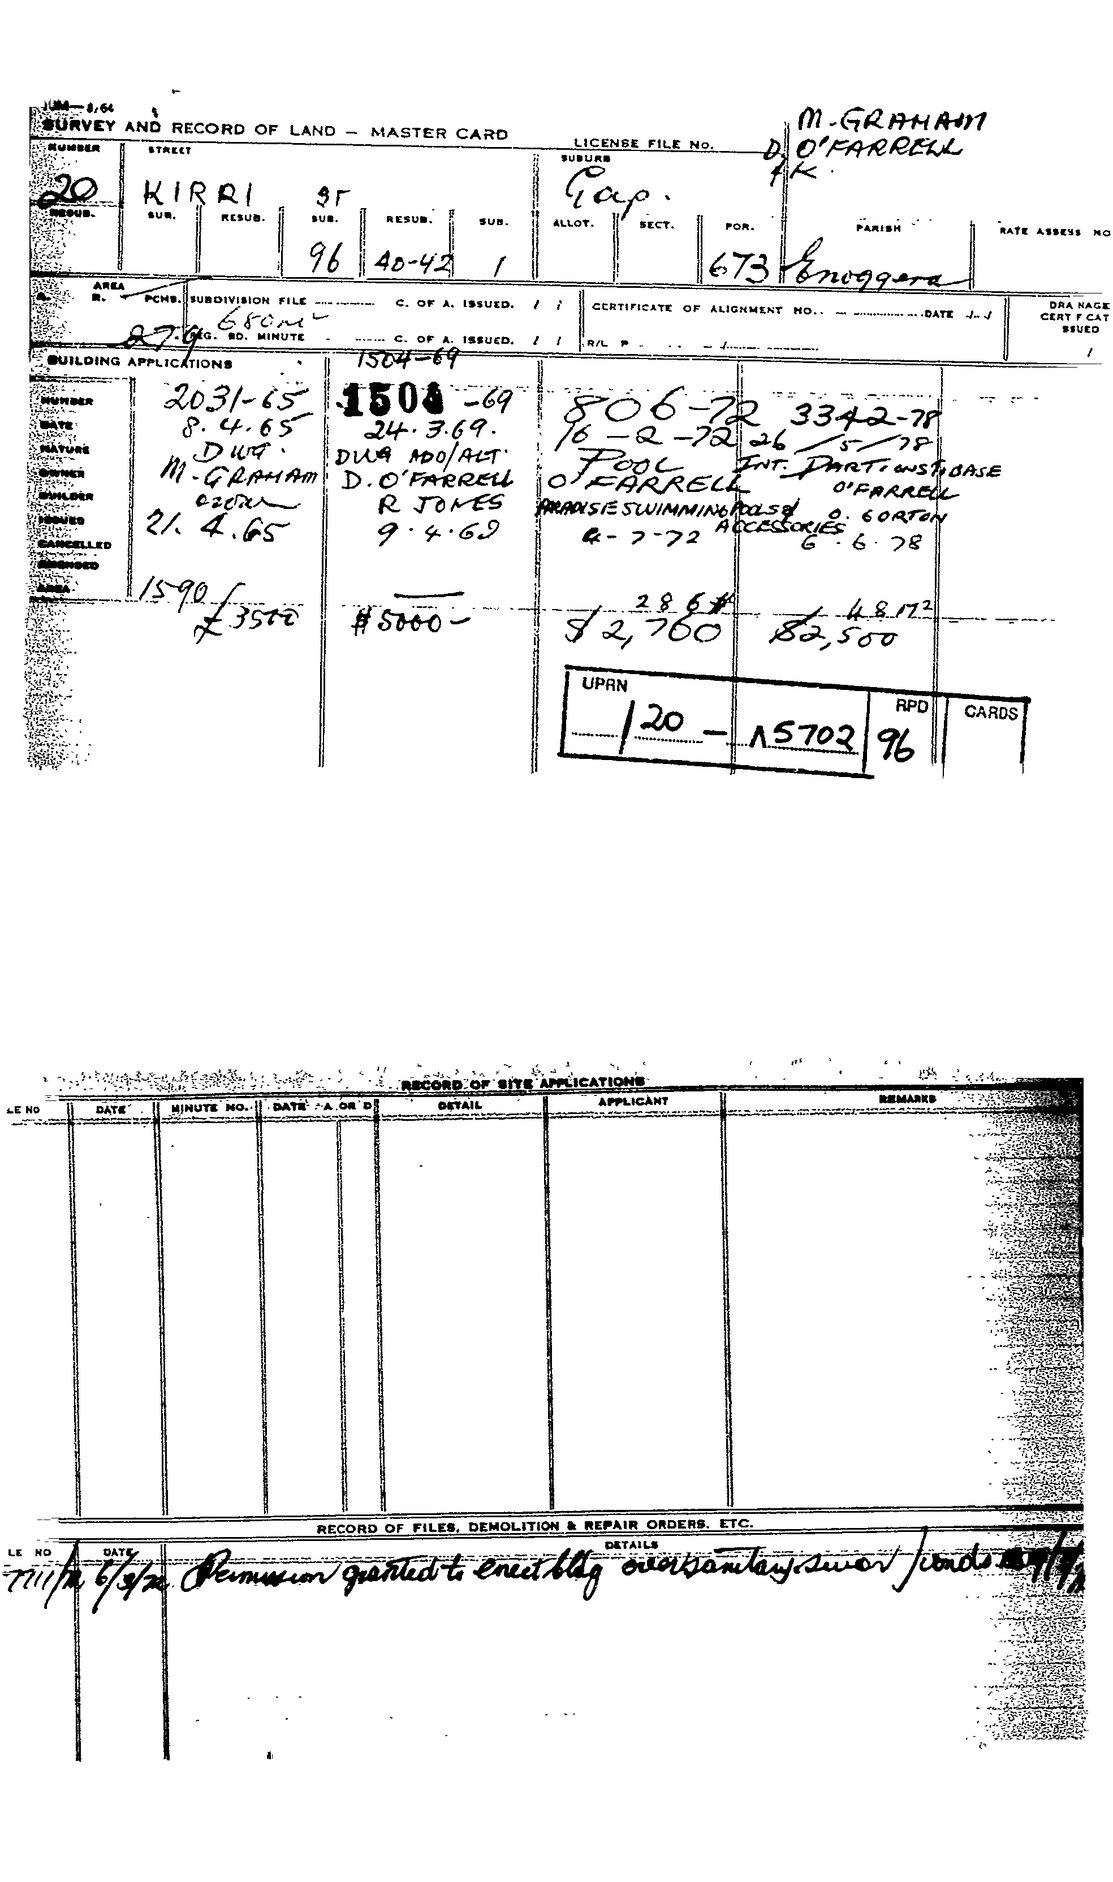 SURVEY AND RECORD OF LAND — MASTER CARD
LICENSE FILE NO.
M. GRAHAM
D. O'FARRELL
& K.
NUMBER STREET SUBURB
20 KIRRI ST Gap.
RESUB. SUB. RESUB. SUB. RESUB. SUB. ALLOT. SECT. POR. PARISH RATE ASSESS NO
96 40-42 1 673 Enoggera
AREA
A. R. PCHS. SUBDIVISION FILE C. OF A. ISSUED. / / CERTIFICATE OF ALIGNMENT NO. DATE / / DRA NAGE
CERT F CAT
SSUED
680m²
27.9 REG. BD. MINUTE C. OF A. ISSUED. / / R/L P /
BUILDING APPLICATIONS 1504-69
NUMBER 2031-65 1504 -69 806-72 3342-78
DATE 8.4.65 24.3.69. 16-2-72 26/5/78
NATURE DWG. DWG ADD/ALT. POOL INT. PART. BASE
OWNER M. GRAHAM D. O'FARRELL O'FARRELL O'FARRELL
BUILDER R JONES PARADISE SWIMMING POOLS & ACCESSORIES O. GORTON
ISSUED 21.4.65 9.4.69 4-7-72 6.6.78
CANCELLED
AMENDED
AREA 1590 286 48 M²
£3500 $5000- $2,760 $2,500
UPRN RPD CARDS
/20 - 15702 96
RECORD OF SITE APPLICATIONS
LE NO DATE MINUTE NO. DATE A OR D DETAIL APPLICANT REMARKS
RECORD OF FILES, DEMOLITION & REPAIR ORDERS. ETC.
LE NO DATE DETAILS
6/3/72 Permission granted to erect bldg over sanitary sewer / conds